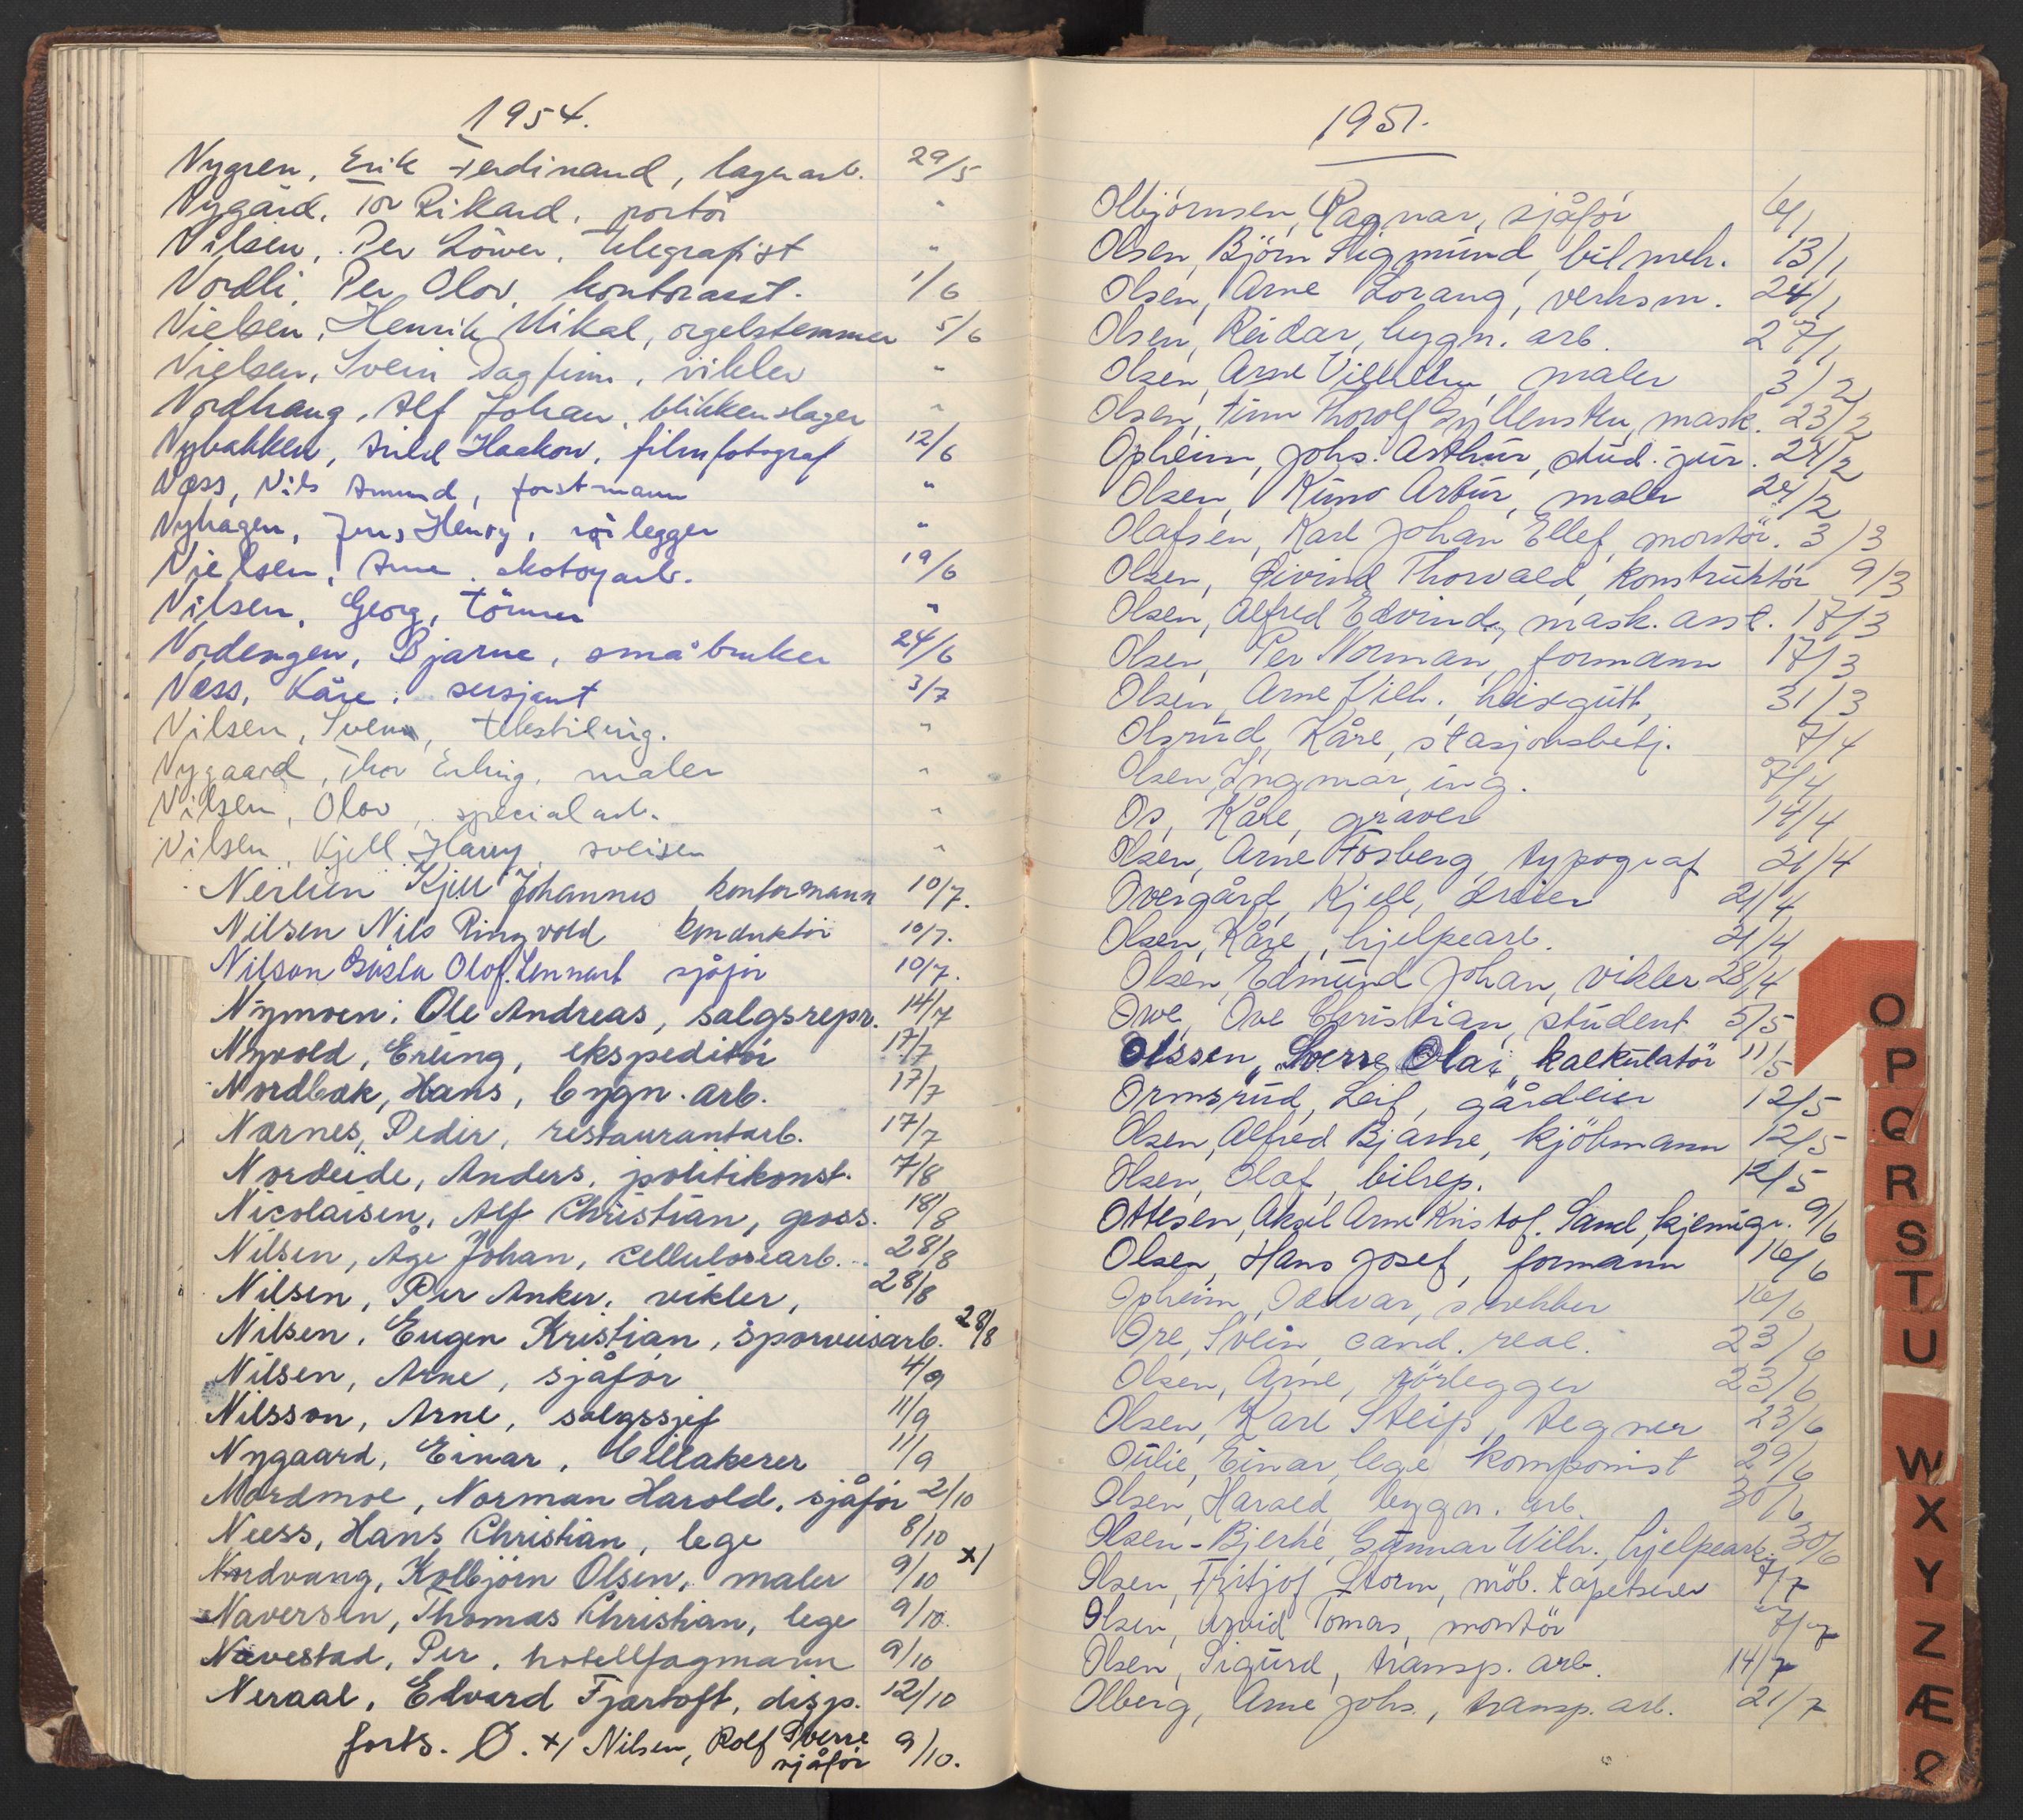 1954.
Nygren, Erik Ferdinand, lagerarb. 29/5
Nygård, Tor Rikard, portör "
Nilsen, Per Löwer, telegrafist "
Nordli, Per Olov, kontorasst. 1/6
Nielsen, Henrik Mikal, orgelstemmer 5/6
Nielsen, Svein Dagfinn, vikler "
Nordhaug, Alf Johan, blikkenslager "
Nybakken, Haakon, filmfotograf 12/6
Næss, Nils Amund, forstmann "
Nyhagen, Jens Henry, rörlegger "
Nielsen, Arne, skotöyarb. 19/6
Nilsen, Georg, tömmer "
Nordengen, Bjarne, småbruker 24/6
Næss, Kåre, sersjant 3/7
Nilsen, Svenn, tekstiling. "
Nygaard, Thor Erling, maler "
Nilsen, Olav, specialarb. "
Nilsen, Kjell Harry, sveiser "
Nerlien Kjell Johannes kontormann 10/7.
Nilsen Nils Ringvold konduktör 10/7.
Nilson Gösta Olof. Lennart sjåför 10/7.
Nymoen, Ole Andreas, salgsrepr. 14/7
Nyvold, Erling, ekspeditör 17/7
Nordbak, Hans, bygn. arb. 17/7
Nærnes, Peder, restaurantarb. 17/7
Nordeide, Anders, politikonst. 7/8
Nicolaisen, Alf Christian, gross. 18/8
Nilsen, Åge Johan, cellulosearb. 28/8
Nilsen, Per Anker, vikler, 28/8
Nilsen, Eugen Kristian, sporveisarb. 28/8
Nilsen, Arne, sjåför 4/9
Nilsson, Arne, salgssjef 11/9
Nygaard, Einar, billakerer 11/9
Nordmoe, Norman Harold, sjåför 2/10
Neess, Hans Christian, lege 8/10
Nordvang, Kolbjörn Olsen, maler 9/10 x/
Naversen, Thomas Christian, lege 9/10.
Nævestad, Per, hotellfagmann 9/10
Neraal, Edvard Fjærtoft, disp. 12/10
forts. Ø. x/ Nilsen, Rolf Sverre 9/10.
sjåför
1951.
Olbjörnsen, Ragnar, sjåför 6/1
Olsen, Björn Sigmund, bilmek. 13/1
Olsen, Arne Lorang, verksm. 24/1
Olsen, Reidar, bygn. arb. 27/1
Olsen, Arne Vilhelm, maler 3/2
Olsen, Finn Thorolf Gyllensten, mask. 23/2
Opheim, Johs. Arthur, stud. jur. 24/2
Olsen, Kuno Artur, maler 24/2
Olafsen, Karl Johan Ellef, montör. 3/3
Olsen, Øivind Thorvald, konstruktör 9/3
Olsen, Alfred Edvind, mask. asst. 17/3
Olsen, Per Norman, formann 17/3
Olsen, Arne Vilh., heisgutt, 31/3
Olsrud, Kåre, stasjonsbetj. 7/4
Olsen, Ingmar, ing. 7/4
Os, Kåre, graver 14/4
Olsen, Arne Fosberg, typograf 21/4
Overgård, Kjell, dreier 21/4
Olsen, Kåre, hjelpearb. 21/4
Olsen, Edmund Johan, vikler 28/4
Owe, Ove Christian, student 5/5
Olssen, Sverre Olav, kalkulatör 11/5
Ormsrud, Leif, gårdeier 12/5
Olsen, Alfred Bjarne, kjöbmann 12/5
Olsen, Olaf, bilrep. 12/5
Ottesen, Aksel Arne Kristof. Sand, kjemigr. 9/6
Olsen, Hans Josef, formann 16/6
Opheim, Oddvar, snekker 16/6
Ore, Svein, cand. real. 23/6
Olsen, Arne, rörlegger 23/6
Olsen, Karl Steip, tegner 23/6
Oulie, Einar, lege komponist 29/6
Olsen, Harald, bygn. arb. 30/6
Olsen-Bjerke, Gunnar Wilh., hjelpearb. 30/6
Olsen, Fritjof Storm, möb. tapetserer 7/7
Olsen, Arvid Tomas, montör 7/7
Olsen, Sigurd, transp. arb. 14/7
Olberg, Arne Johs., transp. arb. 21/7
O
P
Q
R
S
T
U
W
X
Y
Z
Æ
Ø